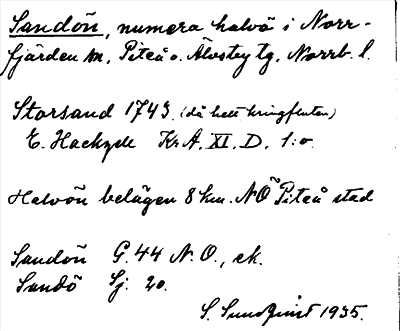 Sandön, numera halvö i Norr-
fjärden sn, Piteå o. Älvsby tg, Norrb. l.
Storsand 1743. (då helt kringfluten)
E. Hackzele Kr.A. XI. D. 1:o.
Halvön belägen 8 km. NÖ Piteå stad
Sandön G. 44 N.O., ek.
Sandö Sj. 20.
S. Sundqvist 1935.